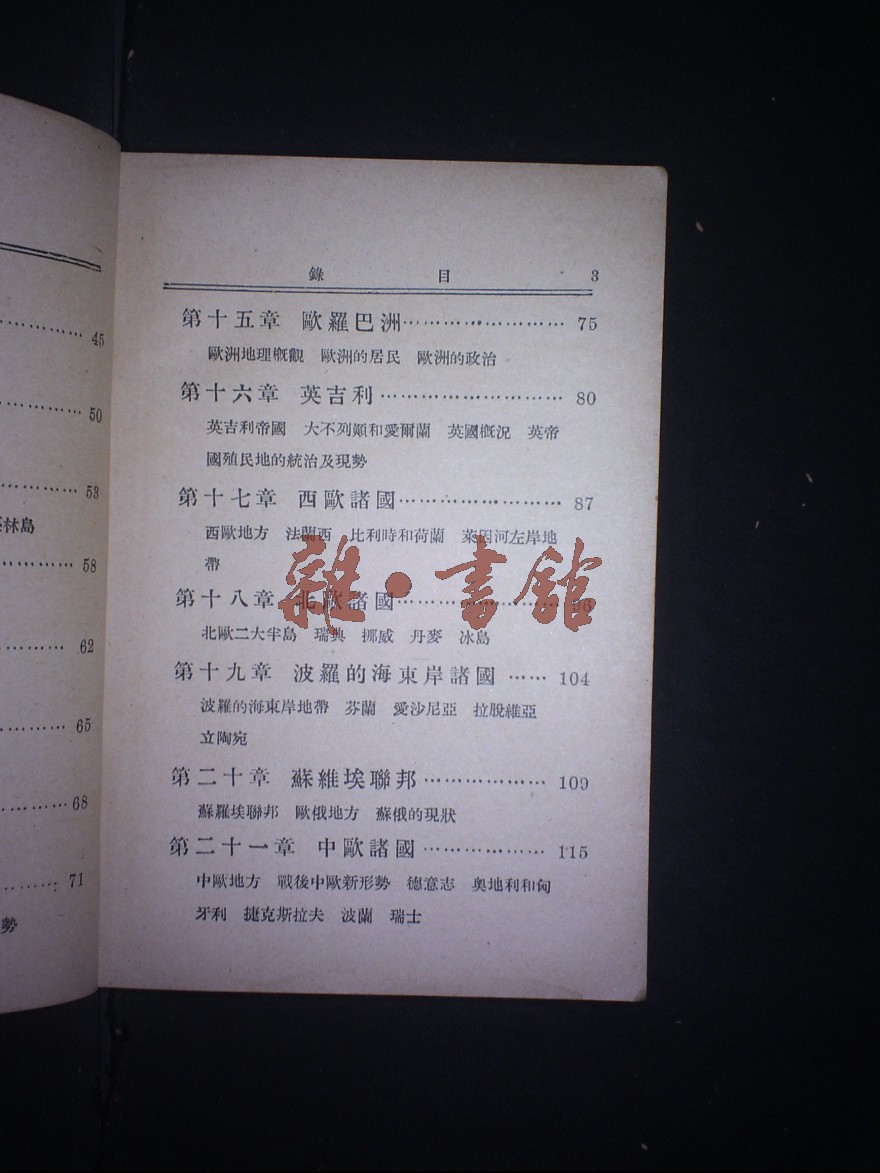 錄 目 3
第十五章 歐羅巴洲………………………… 75
歐洲地理概觀 歐洲的居民 歐洲的政治
第十六章 英吉利………………………… 80
英吉利帝國 大不列顛和愛爾蘭 英國概況 英帝
國殖民地的統治及現勢
第十七章 西歐諸國…………………… 87
西歐地方 法蘭西 比利時和荷蘭 萊因河左岸地
帶
第十八章 北歐諸國……………………
北歐二大半島 瑞典 挪威 丹麥 冰島
第十九章 波羅的海東岸諸國 …… 104
波羅的海東岸地帶 芬蘭 愛沙尼亞 拉脫維亞
立陶宛
第二十章 蘇維埃聯邦……………… 109
蘇羅埃聯邦 歐俄地方 蘇俄的現狀
第二十一章 中歐諸國……………… 115
中歐地方 戰後中歐新形勢 德意志 奧地利和匈
牙利 捷克斯拉夫 波蘭 瑞士
雜·書館
45
50
53
林島
58
62
65
68
71
勢